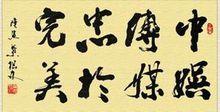 中娛
傳媒
忠於
完美